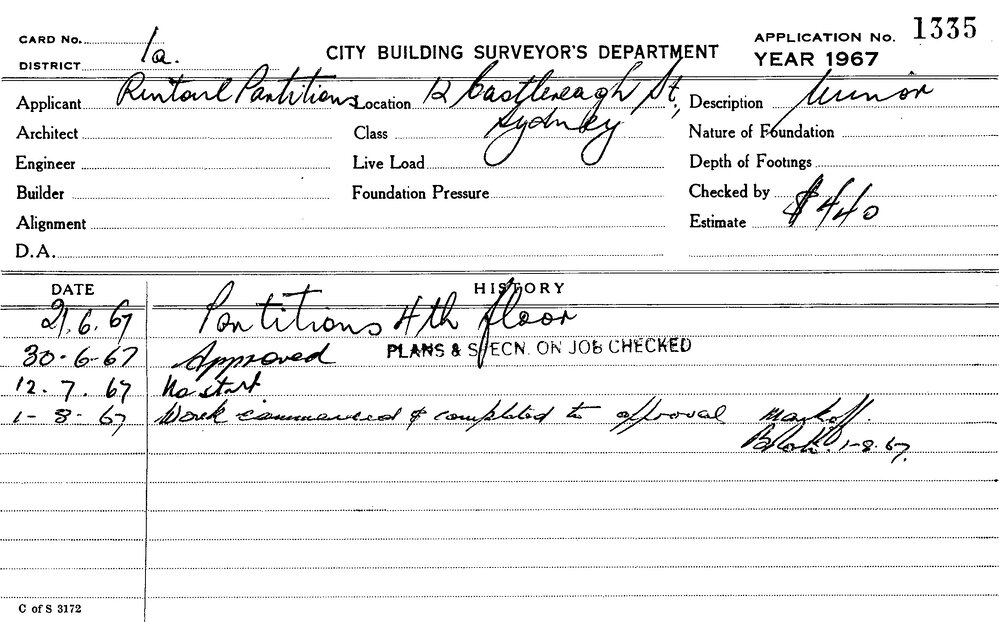 CARD No.
DISTRICT 1a.
CITY BUILDING SURVEYOR'S DEPARTMENT
APPLICATION No. 1335
YEAR 1967
Applicant Rintoul Partitions Location 12 Castlereagh St, Sydney Description Minor
Architect Class Nature of Foundation
Engineer Live Load Depth of Footings
Builder Foundation Pressure Checked by
Alignment Estimate $440
D.A.
DATE HISTORY
21.6.67 Partitions 4th floor
30-6-67 Approved PLANS & SPECN. ON JOB CHECKED
12.7.67 No start
1-8-67 Work commenced & completed to approval Mark off.
1-8-67.
C of S 3172